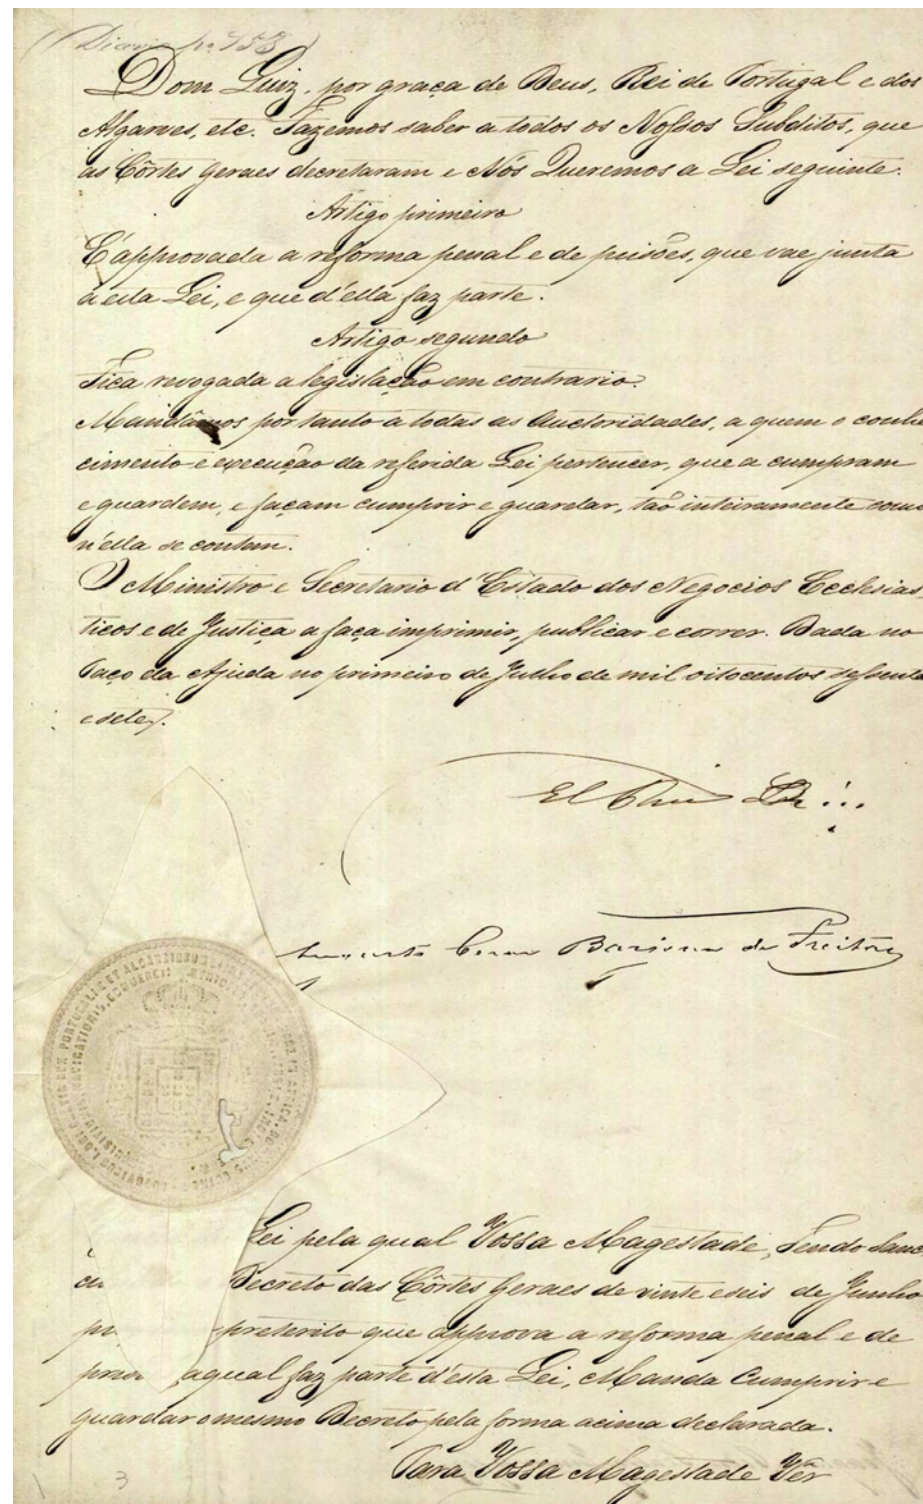 (Diario nº 153)
Dom Luiz, por graça de Deus, Rei de Portugal e dos
Algarves, etc. Fazemos saber a todos os Nossos Subditos, que
as Côrtes Geraes decretaram e Nós Queremos a Lei seguinte.
Artigo primeiro
É approvada a reforma penal e de prisões, que vae junta
a esta Lei, e que d'ella faz parte.
Artigo segundo
Fica revogada a legislação em contrario.
Mandâmos por tanto a todas as Auctoridades, a quem o conhe
cimento e execução da referida Lei pertencer, que a cumpram
e guardem, e façam cumprir e guardar, tão inteiramente como
n'ella se contem.
O Ministro e Secretario d'Estado dos Negocios Ecclesias
ticos e de Justiça a faça imprimir, publicar e correr. Dada no
Paço da Ajuda no primeiro de Julho de mil oitocentos sessenta
e sete.
El Rei
Augusto Cesar Barjona de Freitas
Lei pela qual Vossa Magestade, Tendo Sanc
Decreto das Côrtes Geraes de vinte e seis de Junho
preterito que approva a reforma penal e de
a qual faz parte d'esta Lei, Manda Cumprir e
guardar o mesmo Decreto pela forma acima declarada.
Para Vossa Magestade Vêr
3